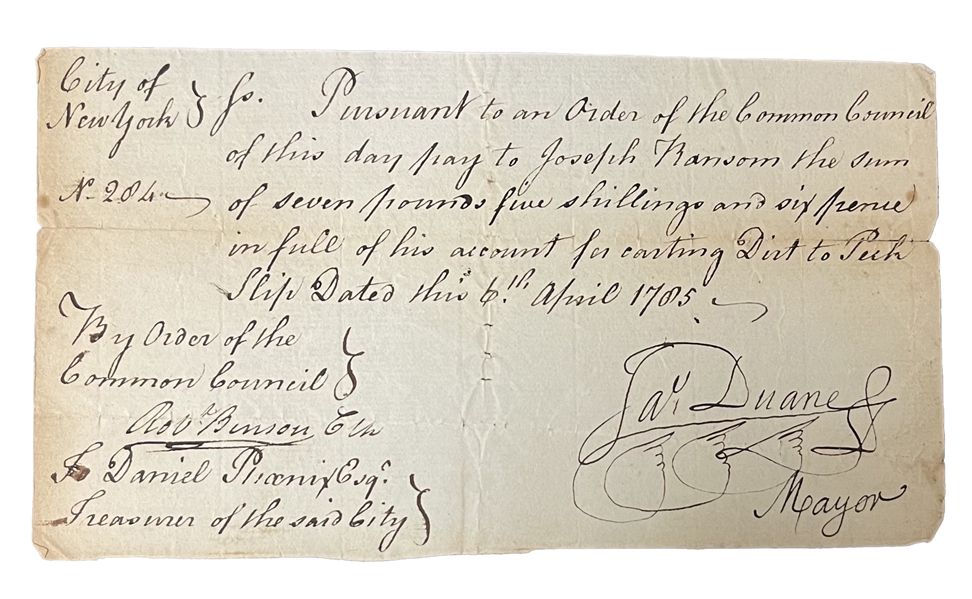 City of
New York } ss. Pursuant to an Order of the Common Council
of this day pay to Joseph Ransom the sum
No 284 of seven pounds five shillings and six pence
in full of his account for carting Dirt to Peck
Slip Dated this 6.th April 1785
By Order of the
Common Council }
Robt Benson Clk
To Daniel Phœnix Esqr.
Treasurer of the said City }
Jas. Duane
Mayor